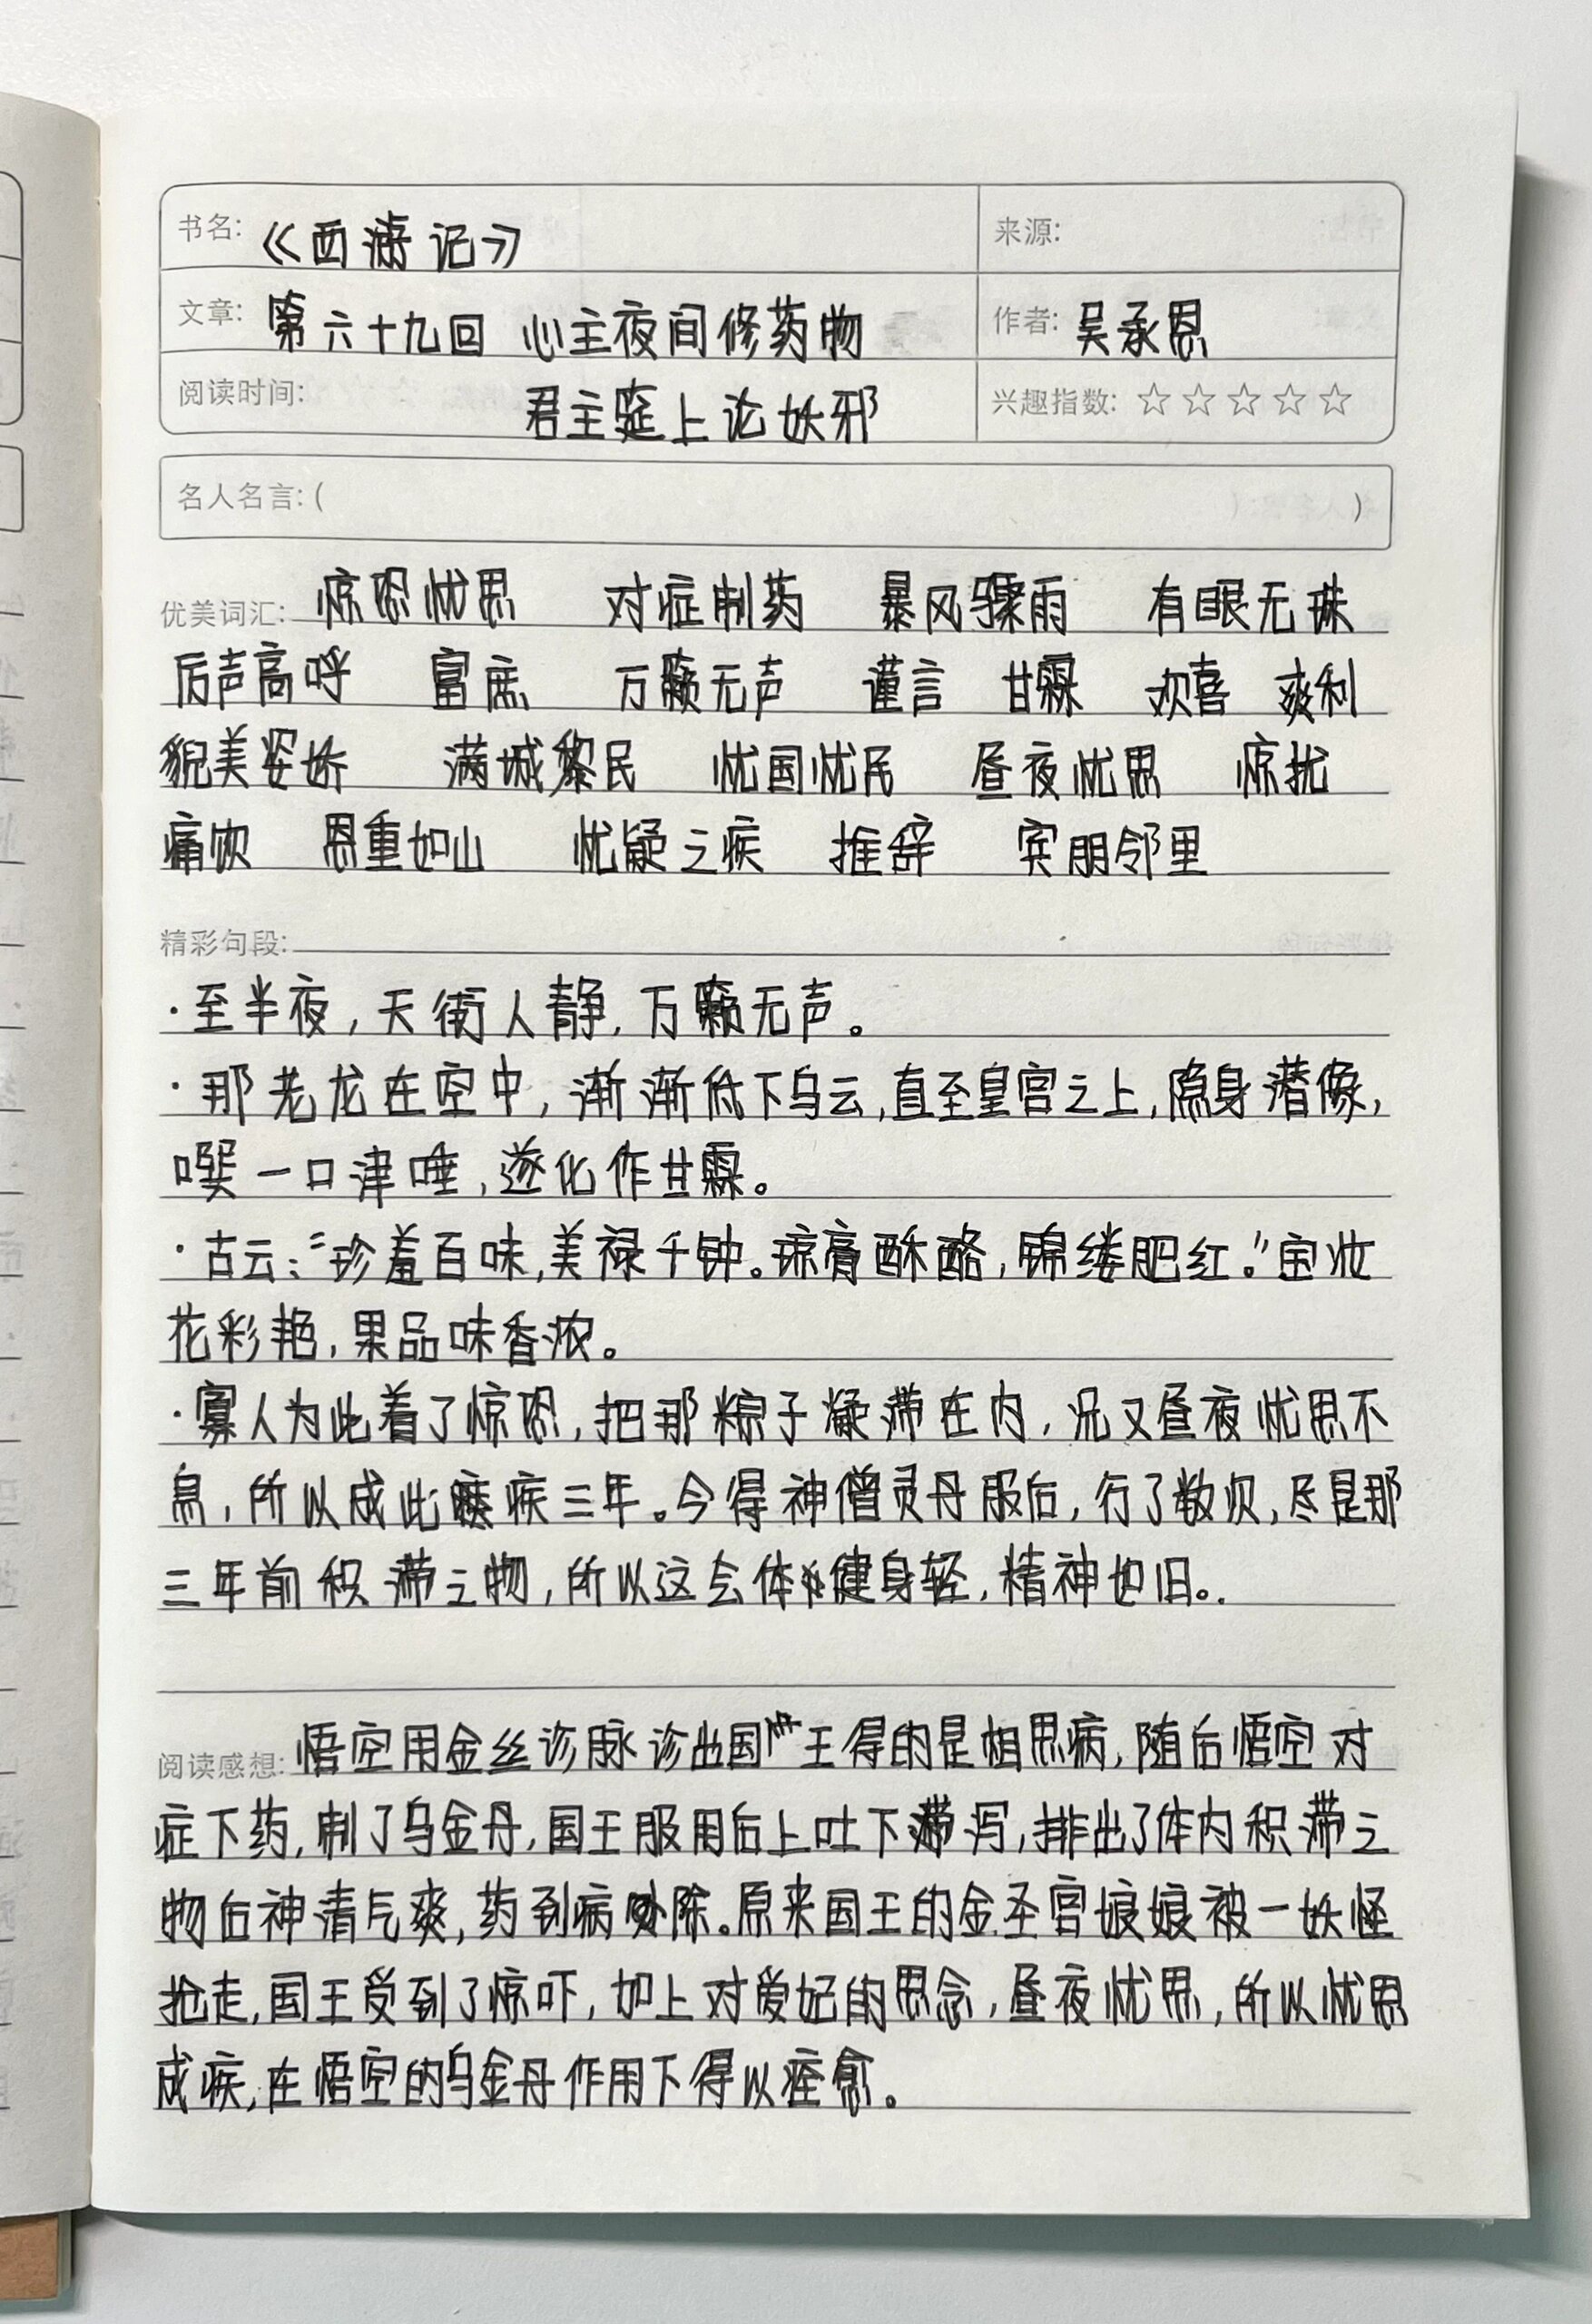 书名: 《西游记》 来源:
文章: 第六十九回 心主夜间修药物 作者: 吴承恩
阅读时间: 君主筵上论妖邪 兴趣指数: ☆☆☆☆☆
名人名言: ( )
优美词汇: 惊恐忧思 对症制药 暴风骤雨 有眼无珠
厉声高呼 富庶 万籁无声 谨言 甘霖 欢喜 爽利
貌美姿娇 满城黎民 忧国忧民 昼夜忧思 惊扰
痛饮 恩重如山 忧疑之疾 推辞 宾朋邻里
精彩句段:
·至半夜,天街人静,万籁无声。
·那老龙在空中,渐渐低下乌云,直至皇宫之上,隐身潜像,
噀一口津唾,遂化作甘霖。
·古云:“珍羞百味,美禄千钟。琼膏酥酪,锦缕肥红。”宝妆
花彩艳,果品味香浓。
·寡人为此着了惊恐,把那粽子凝滞在内,况又昼夜忧思不
息,所以成此疾三年。今得神僧灵丹服后,行了数次,尽是那
三年前积滞之物,所以这会体健身轻,精神如旧。
阅读感想: 悟空用金丝诊脉诊出国王得的是相思病,随后悟空对
症下药,制了乌金丹,国王服用后上吐下泻,排出了体内积滞之
物后神清气爽,药到病除。原来国王的金圣宫娘娘被一妖怪
抢走,国王受到了惊吓,加上对爱妃的思念,昼夜忧思,所以忧思
成疾,在悟空的乌金丹作用下得以痊愈。